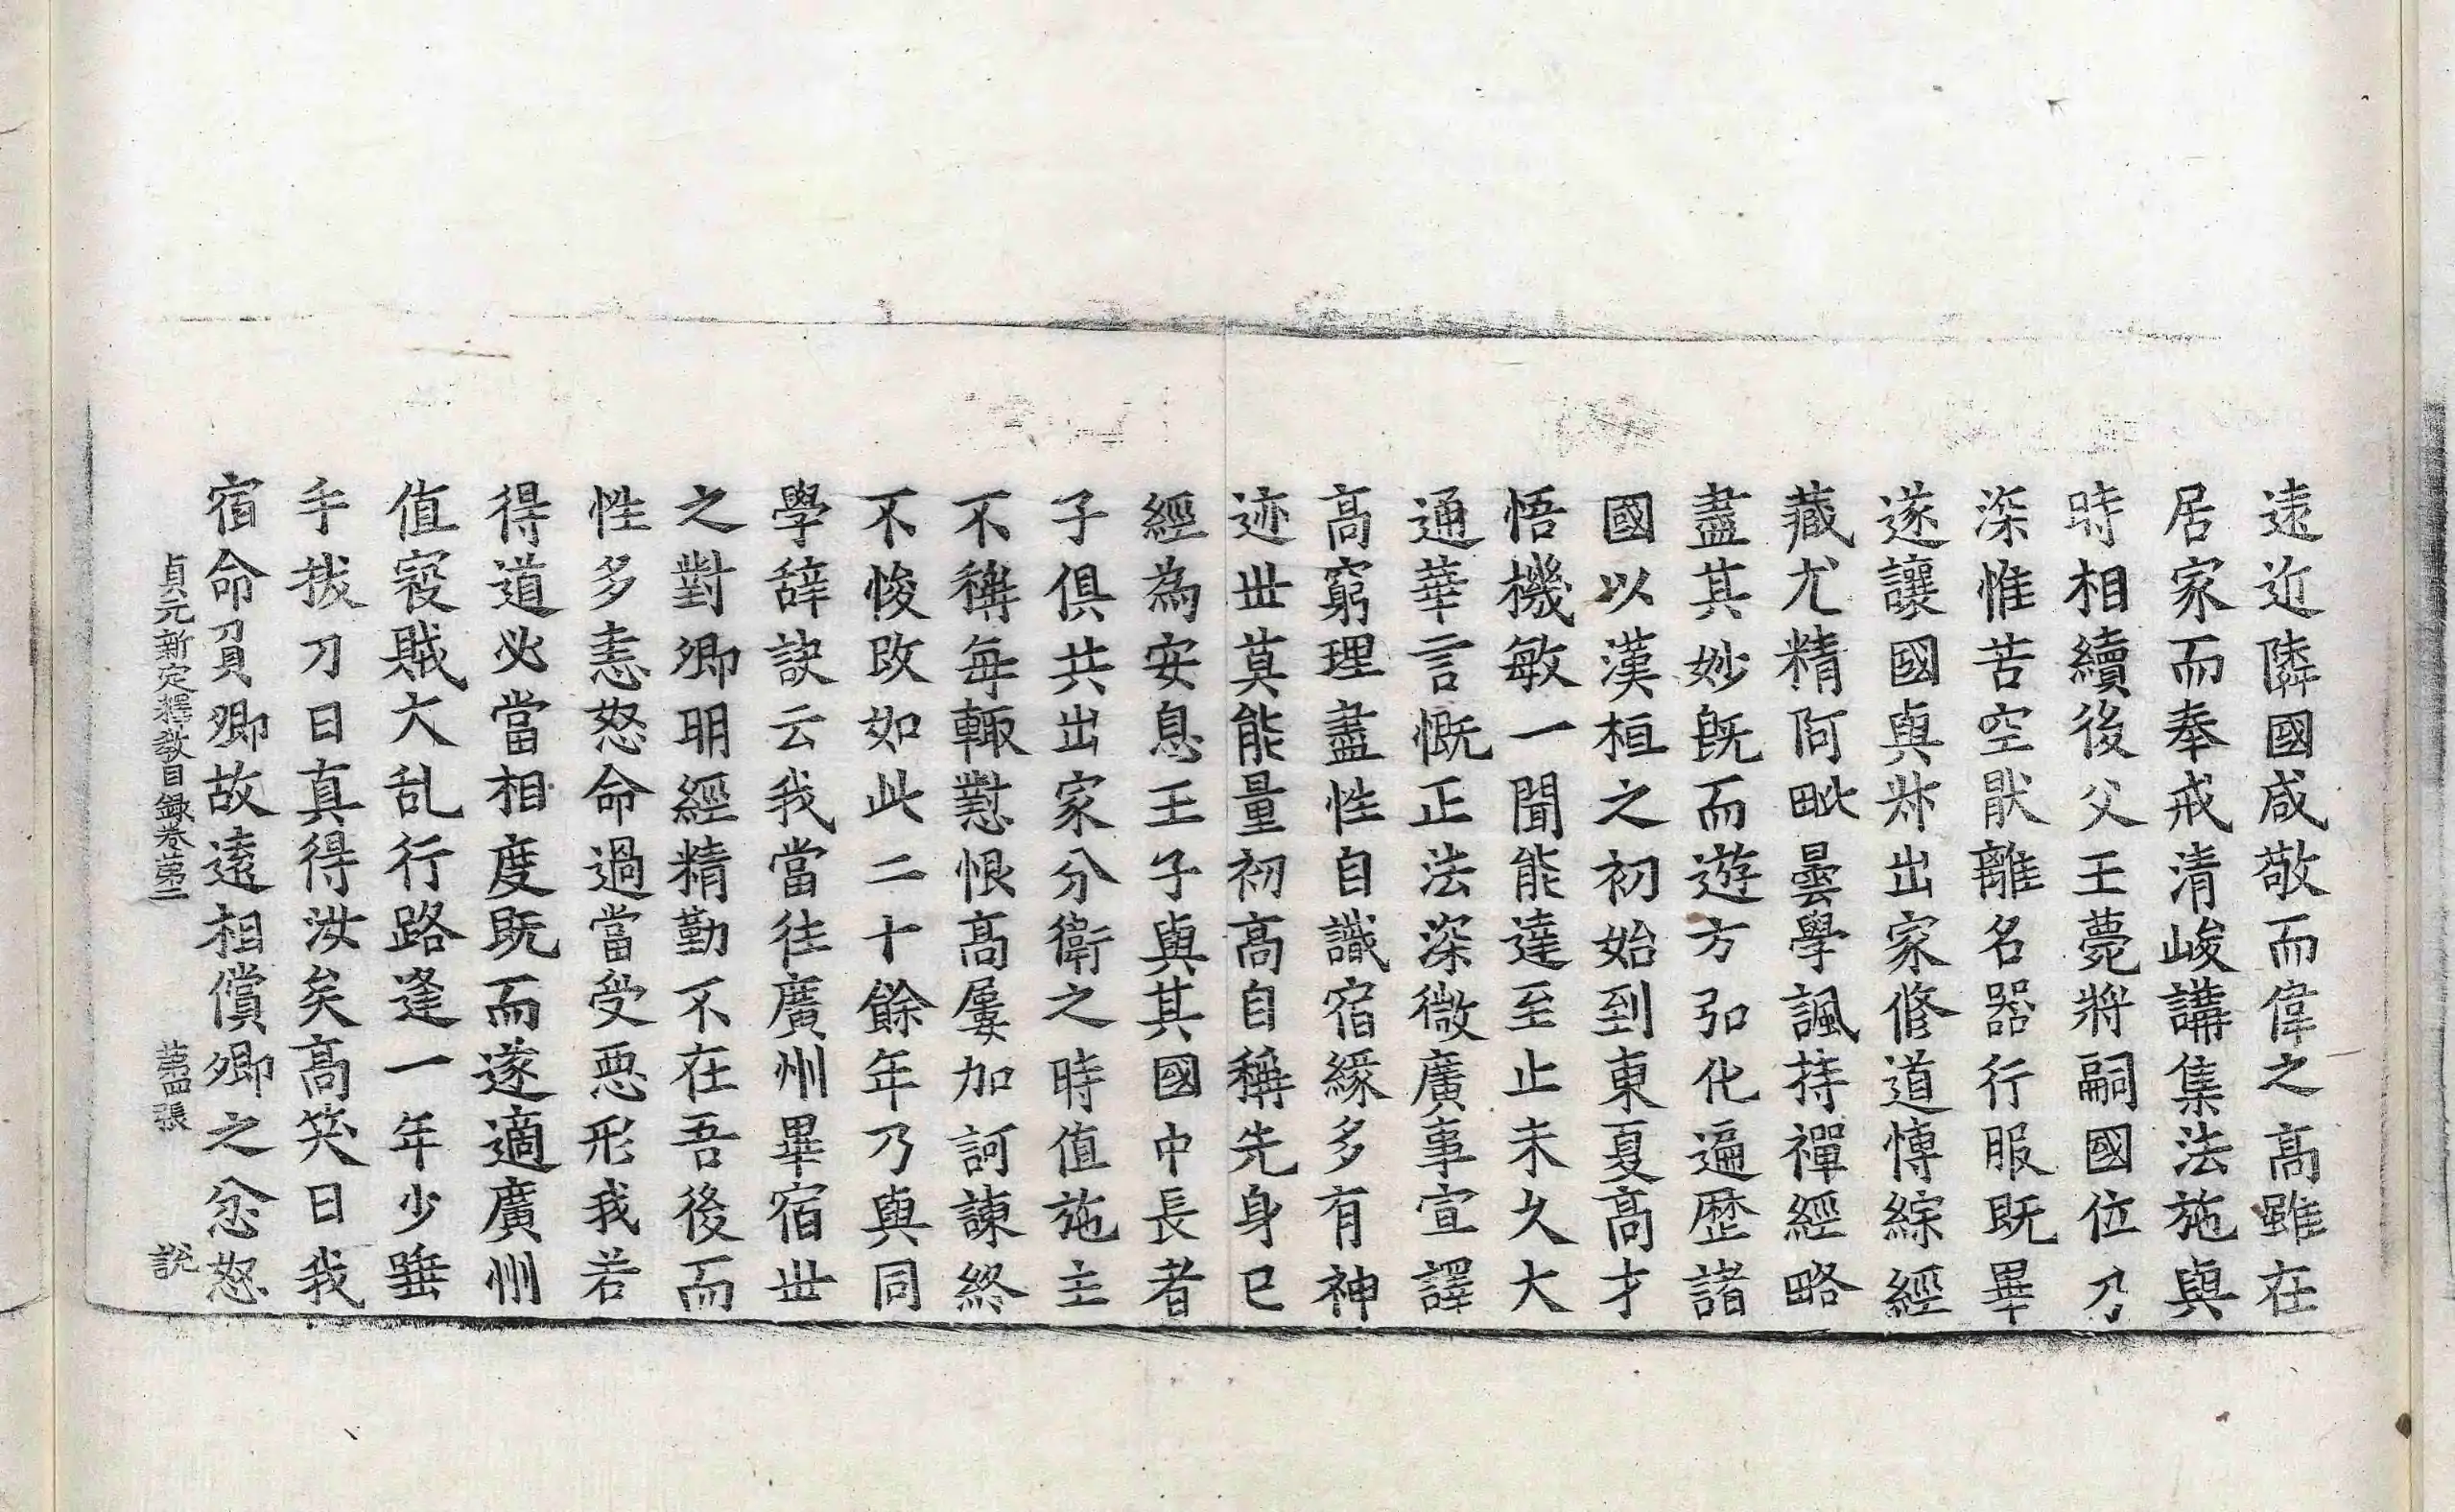 遠近隣國咸敬而偉之髙雖在
居家而奉戒清峻講集法施與
時相續後父王薨將嗣國位乃
深惟苦空猒離名器行服既畢
遂讓國與叔出家修道博綜經
藏尤精阿毗曇學諷持禪經略
盡其妙既而遊方弘化遍歷諸
國以漢桓之初始到東夏髙才
悟機敏一聞能達至止未久大
通華言慨正法深微廣事宣譯
髙窮理盡性自識宿緣多有神
迹世莫能量初髙自稱先身已
經為安息王子與其國中長者
子俱共出家分衛之時值施主
不稱每輙懟恨髙屢加訶諫終
不悛改如此二十餘年乃與同
學辭訣云我當往廣州畢宿世
之對卿明經精勤不在吾後而
性多恚怒命過當受惡形我若
得道必當相度既而遂適廣州
值寇賊大乱行路逢一年少唾
手拔刀曰真得汝矣髙笑曰我
宿命負卿故遠相償卿之忿怒
貞元新定釋教目錄卷第二 第四張 說